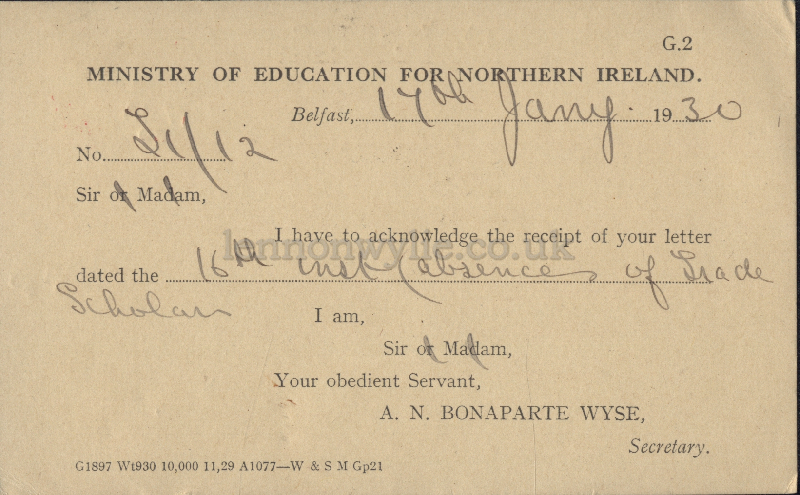 G.2
MINISTRY OF EDUCATION FOR NORTHERN IRELAND.
Belfast, 17th Jany. 1930
No. S1/12
Sir or Madam,
I have to acknowledge the receipt of your letter
lennonwylie.co.uk
dated the 16th inst (absences of Trade
Scholars
I am,
Sir or Madam,
Your obedient Servant,
A. N. BONAPARTE WYSE,
Secretary.
G1897 Wt930 10,000 11,29 A1077—W & S M Gp21